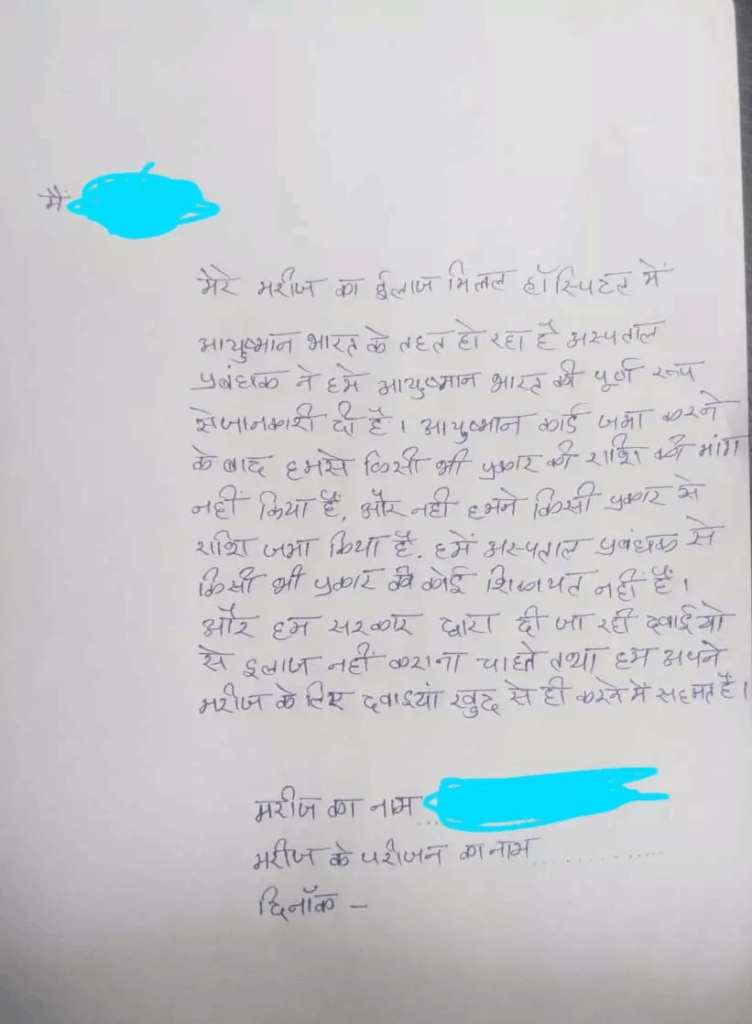 मैं
मेरे मरीज का ईलाज मित्तल हॉस्पिटल में
आयुष्मान भारत के तहत हो रहा है अस्पताल
प्रबंधक ने हमे आयुष्मान भारत की पूर्ण रूप
से जानकारी दी है। आयुष्मान कार्ड जमा करने
के बाद हमसे किसी भी प्रकार की राशि की मांग
नहीं किया है, और नही हमने किसी प्रकार से
राशि जमा किया है. हमें अस्पताल प्रबंधक से
किसी भी प्रकार की कोई शिकायत नहीं है।
और हम सरकार द्वारा दी जा रही दवाईयो
से इलाज नहीं कराना चाहते तथा हम अपने
मरीज के लिए दवाइयां खुद से ही करने में सहमत है।
मरीज का नाम ...
मरीज के परीजन का नाम ...............
दिनाँक –